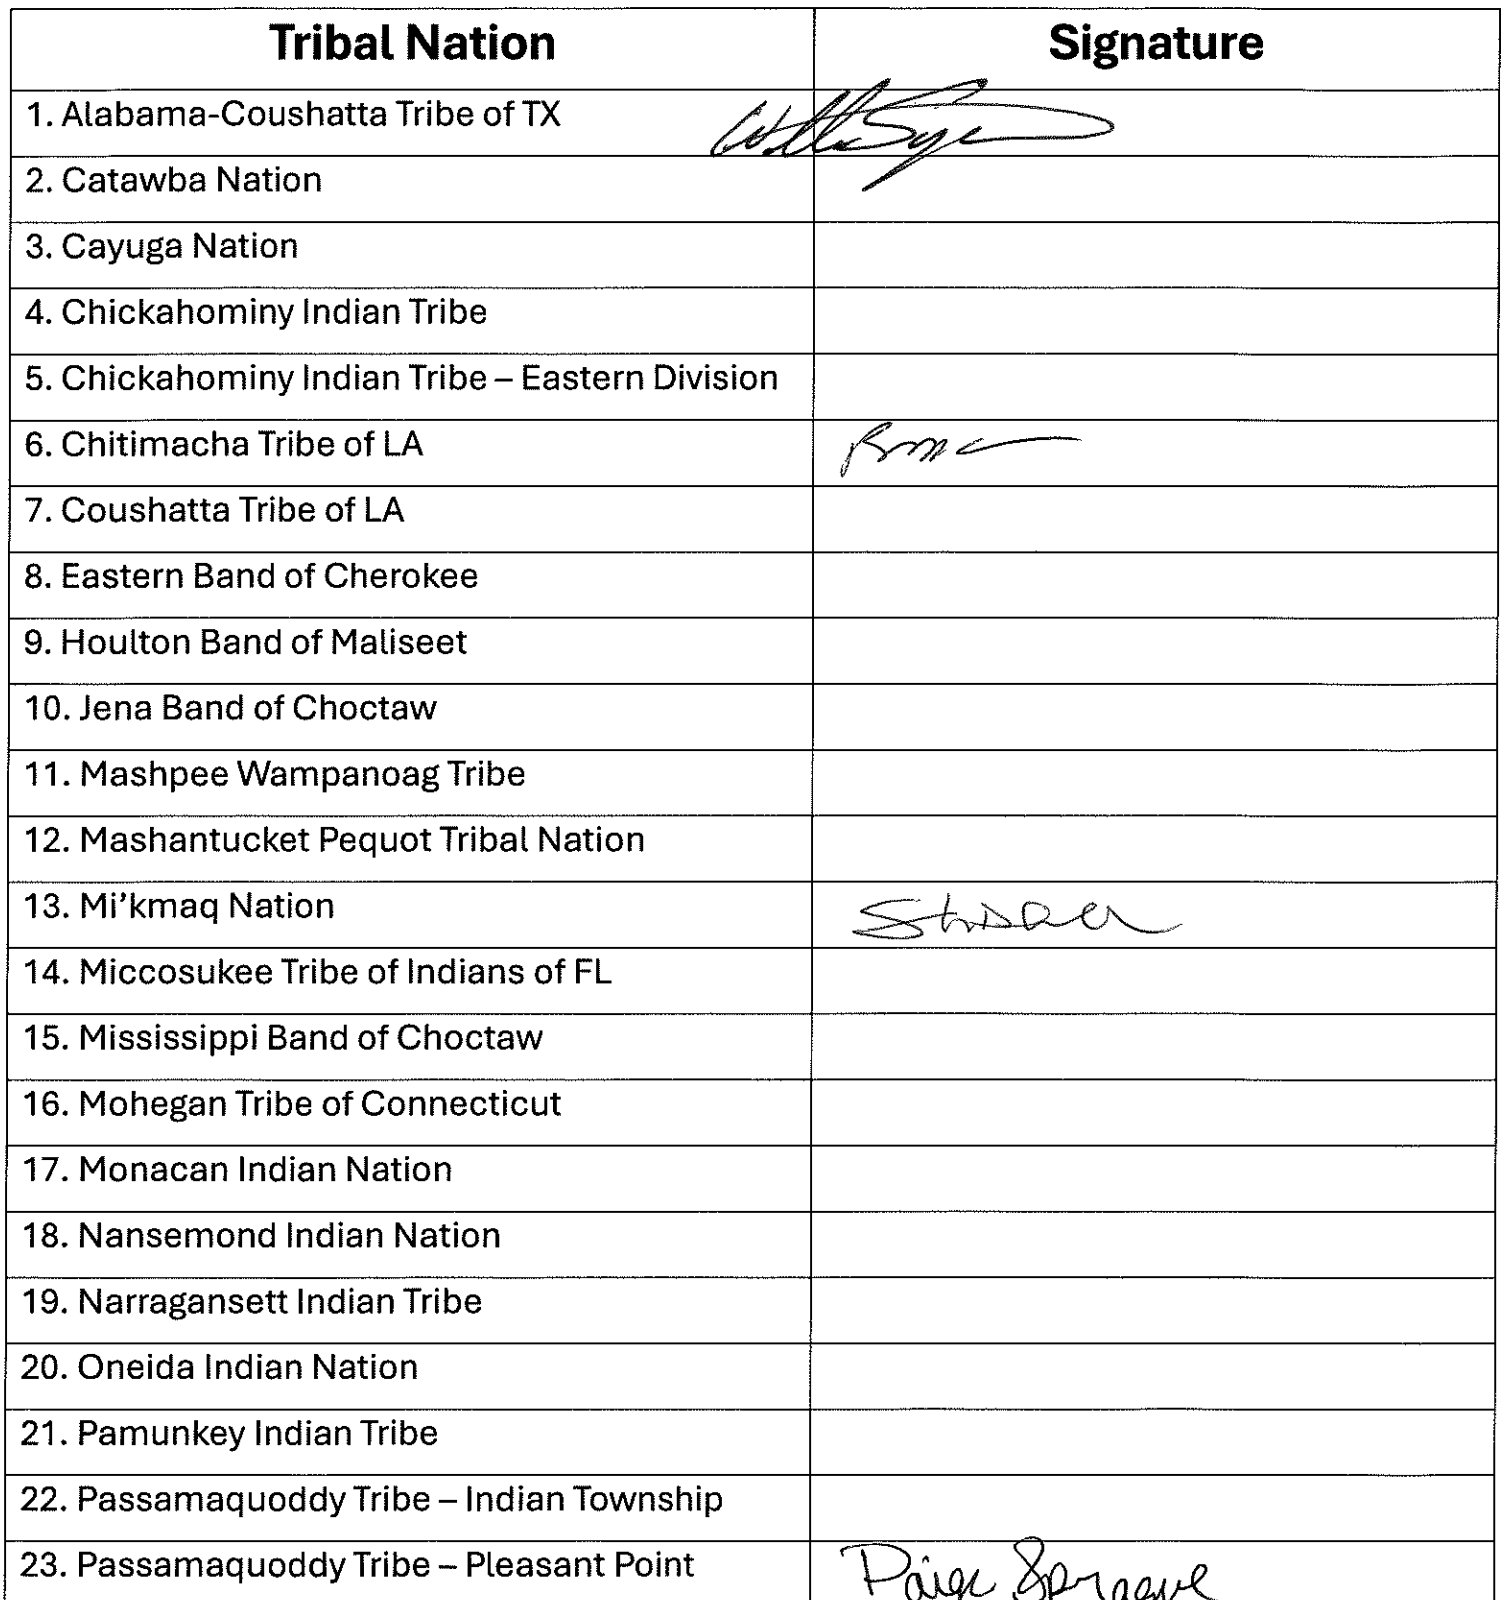 Tribal Nation Signature
1. Alabama-Coushatta Tribe of TX
2. Catawba Nation
3. Cayuga Nation
4. Chickahominy Indian Tribe
5. Chickahominy Indian Tribe – Eastern Division
6. Chitimacha Tribe of LA
7. Coushatta Tribe of LA
8. Eastern Band of Cherokee
9. Houlton Band of Maliseet
10. Jena Band of Choctaw
11. Mashpee Wampanoag Tribe
12. Mashantucket Pequot Tribal Nation
13. Mi'kmaq Nation
14. Miccosukee Tribe of Indians of FL
15. Mississippi Band of Choctaw
16. Mohegan Tribe of Connecticut
17. Monacan Indian Nation
18. Nansemond Indian Nation
19. Narragansett Indian Tribe
20. Oneida Indian Nation
21. Pamunkey Indian Tribe
22. Passamaquoddy Tribe – Indian Township
23. Passamaquoddy Tribe – Pleasant Point Paige Sprague